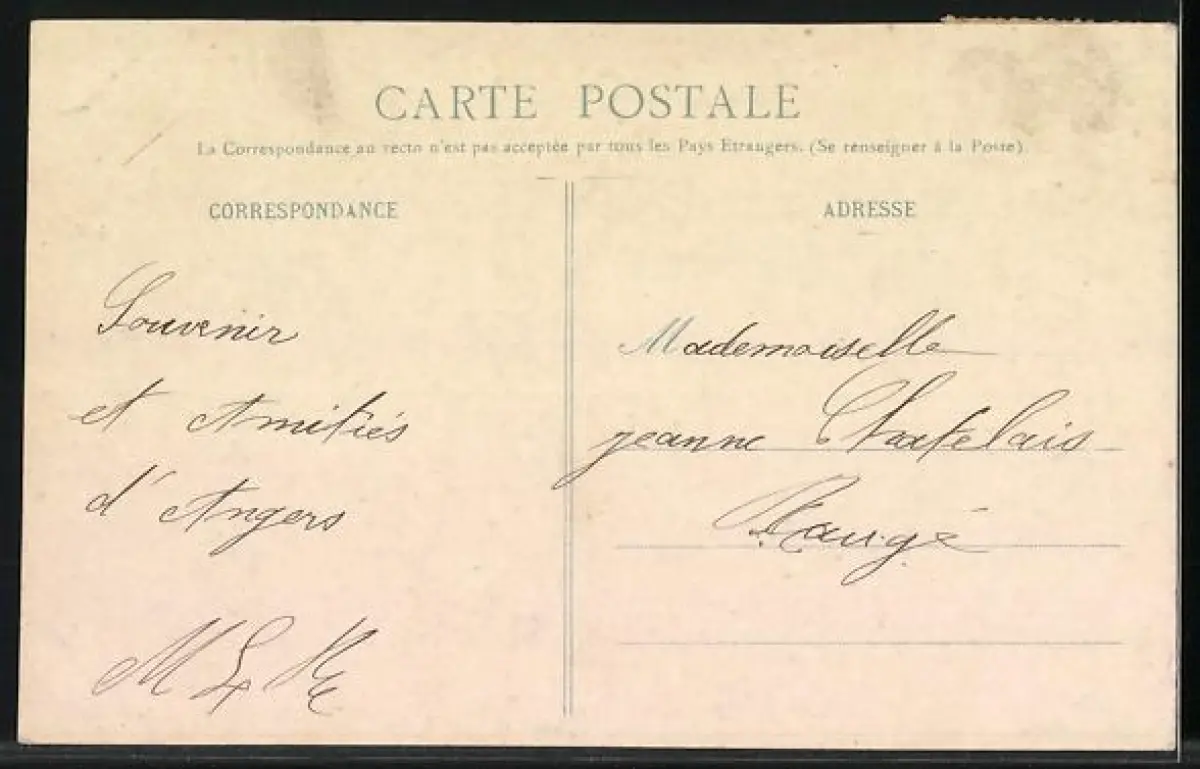 CARTE POSTALE
La Correspondance au recto n'est pas acceptée par tous les Pays Etrangers. (Se renseigner à la Poste)
CORRESPONDANCE
Souvenir
et Amitiés
d'Angers
ADRESSE
Mademoiselle
jeanne Chatelais